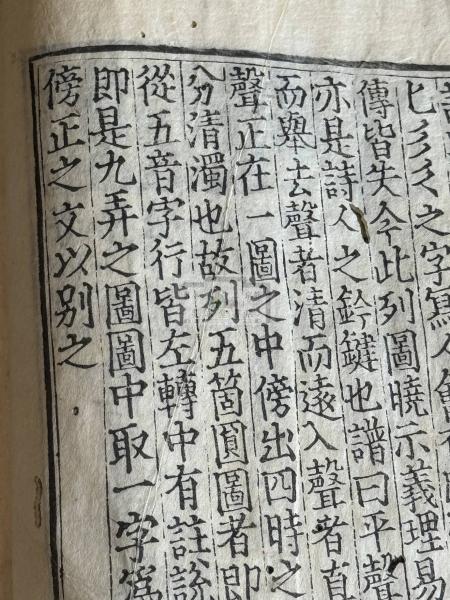 匕彡久之字寫人會
傳皆失今此列圖曉示義理易
亦是詩人之鈐鍵也譜曰平聲
而舉去聲者清而遠入聲者直
聲正在一圖之中傍出四時之
分清濁也故列五箇圓圖者即
從五音字行皆左轉中有註說
即是九弄之圖圖中取一字為
傍正之文以别之